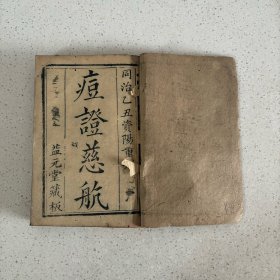 同治乙丑資陽重
痘證慈航
益元堂藏板